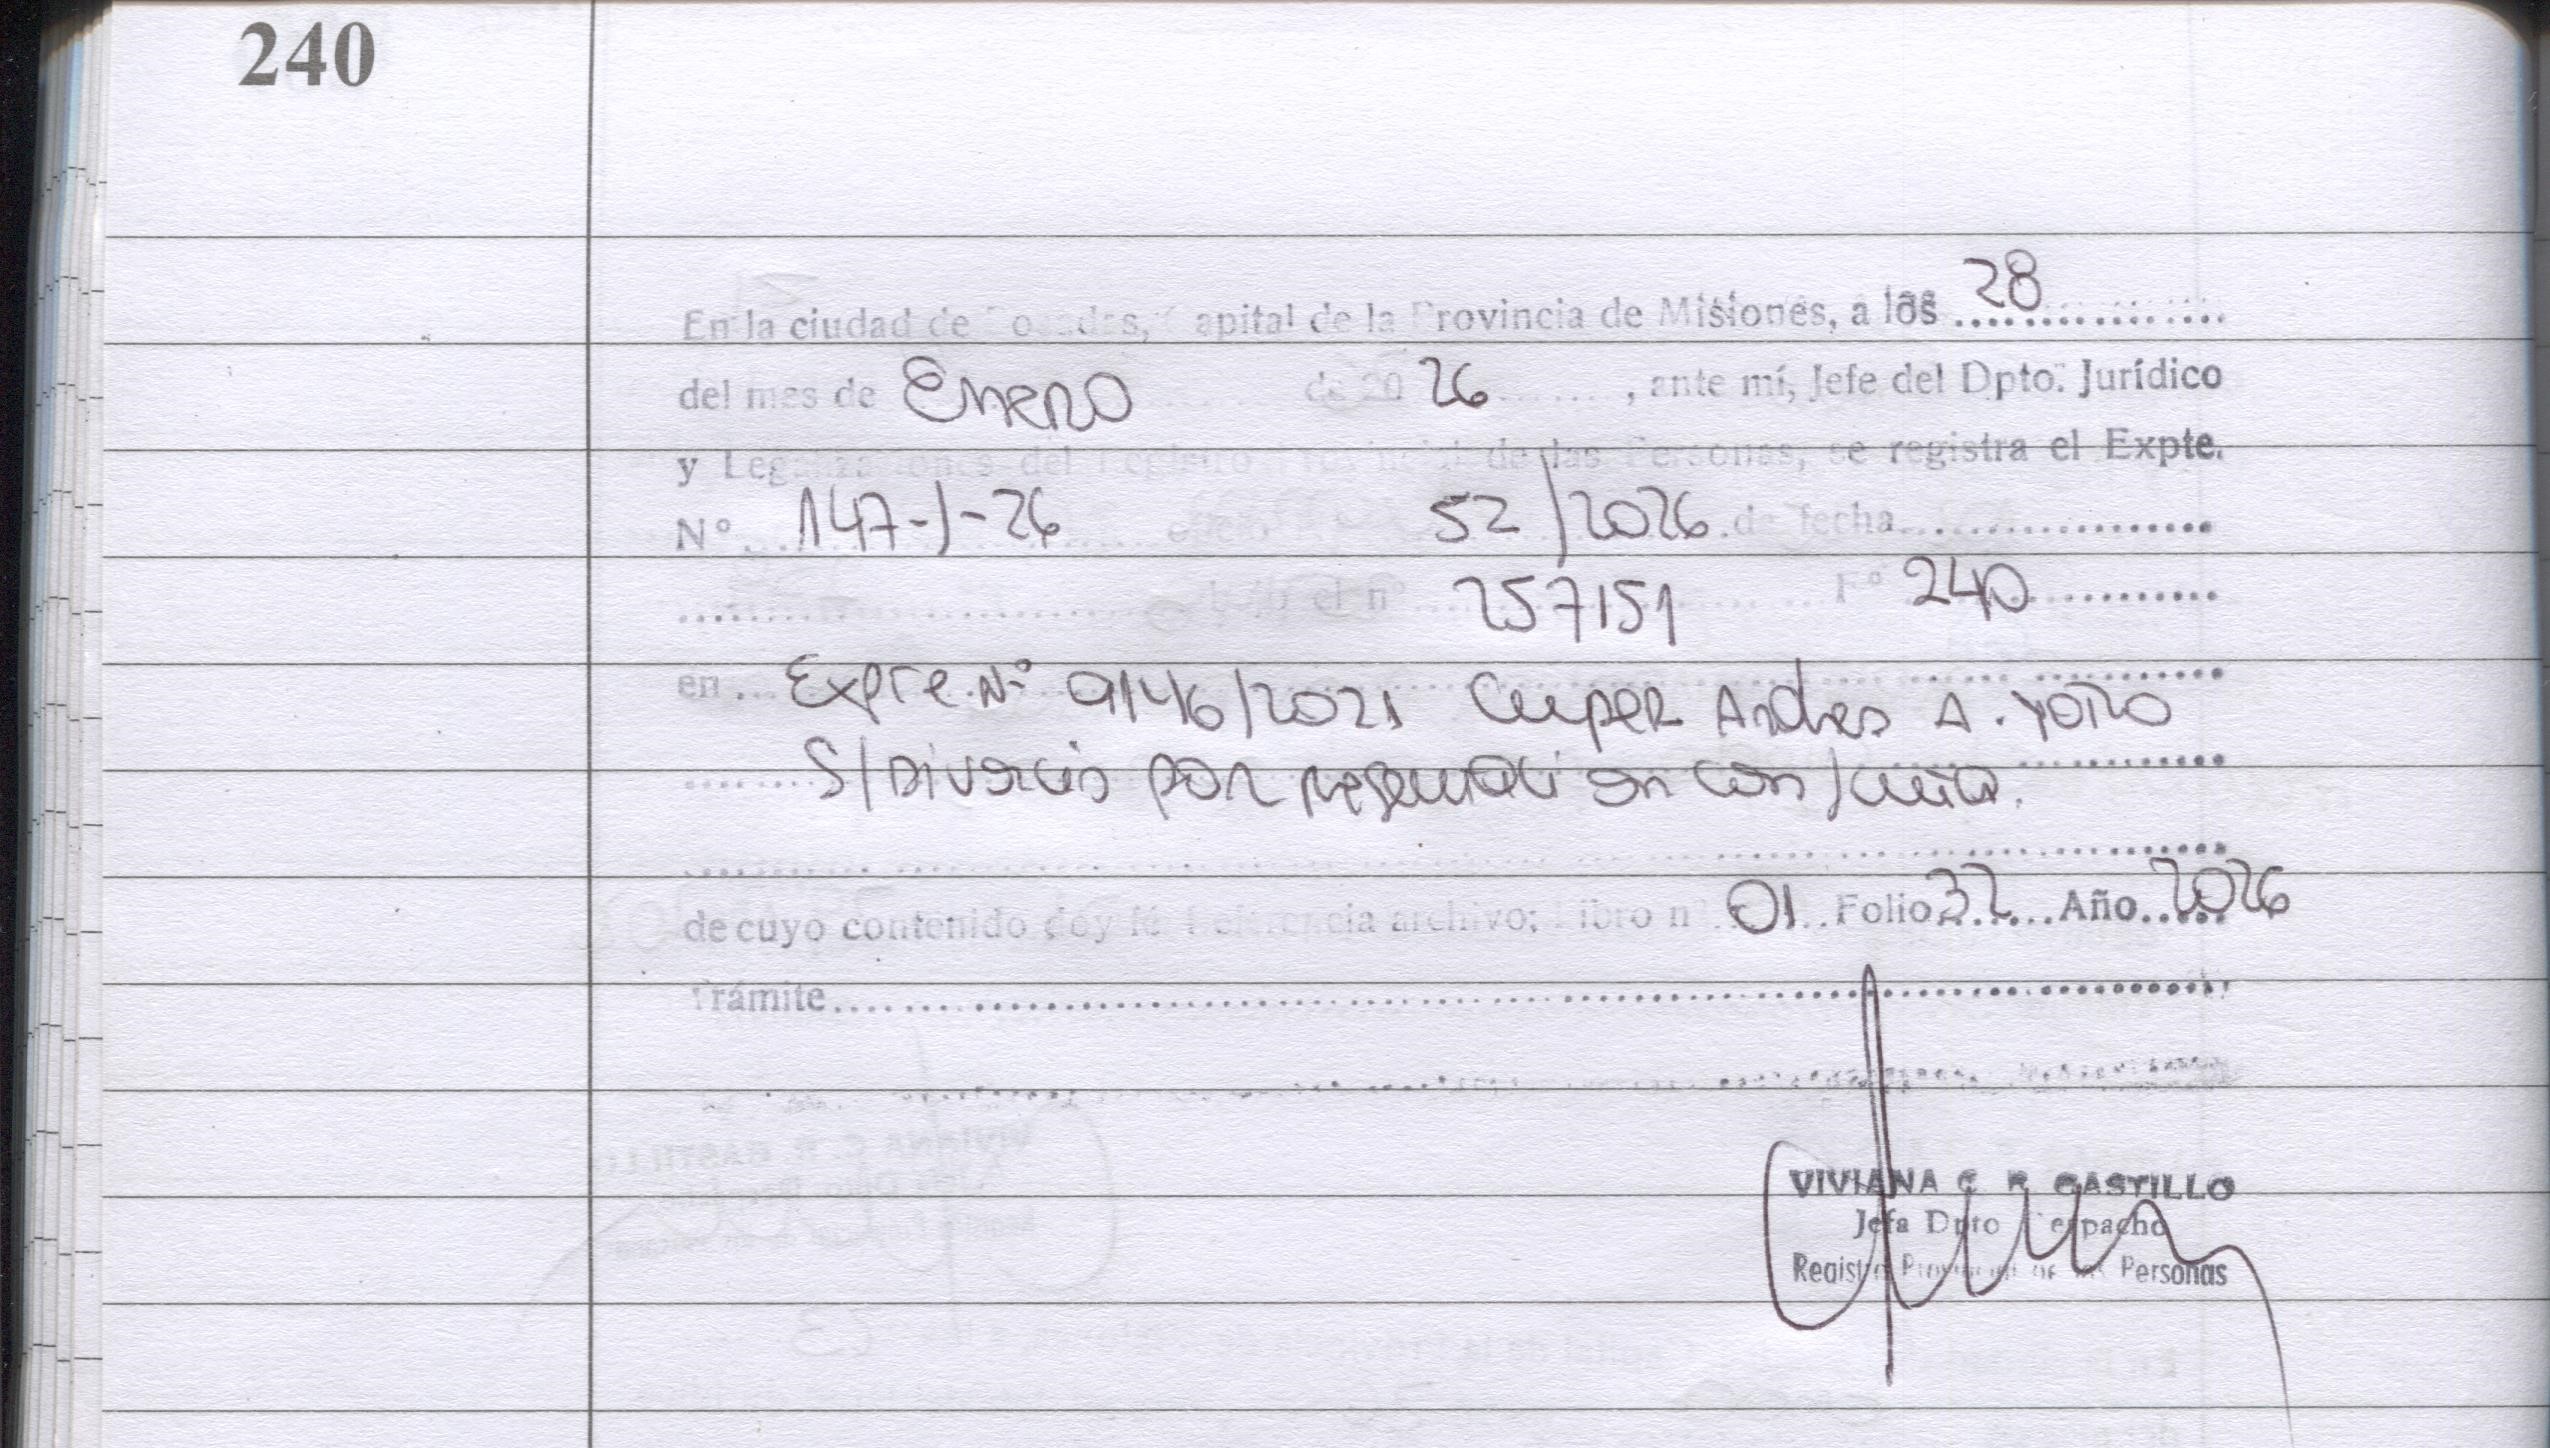 240
En la ciudad de Posadas, Capital de la Provincia de Misiones, a los 28
del mes de Enero de 2026, ante mí, Jefe del Dpto. Jurídico
y Legalizaciones del Registro Provincial de las Personas, se registra el Expte.
Nº 147-J-26 52/2026 de fecha
257151 Fº 240
en Expte. Nº 9146/2021 Cuper Andres A. y otro
S/Divorcio por presentación conjunta.
de cuyo contenido doy fé. Referencia archivo; Libro nº 01 Folio 32 Año 2026
Trámite
VIVIANA C. R. CASTILLO
Jefa Dpto Despacho
Registro Provincial de las Personas